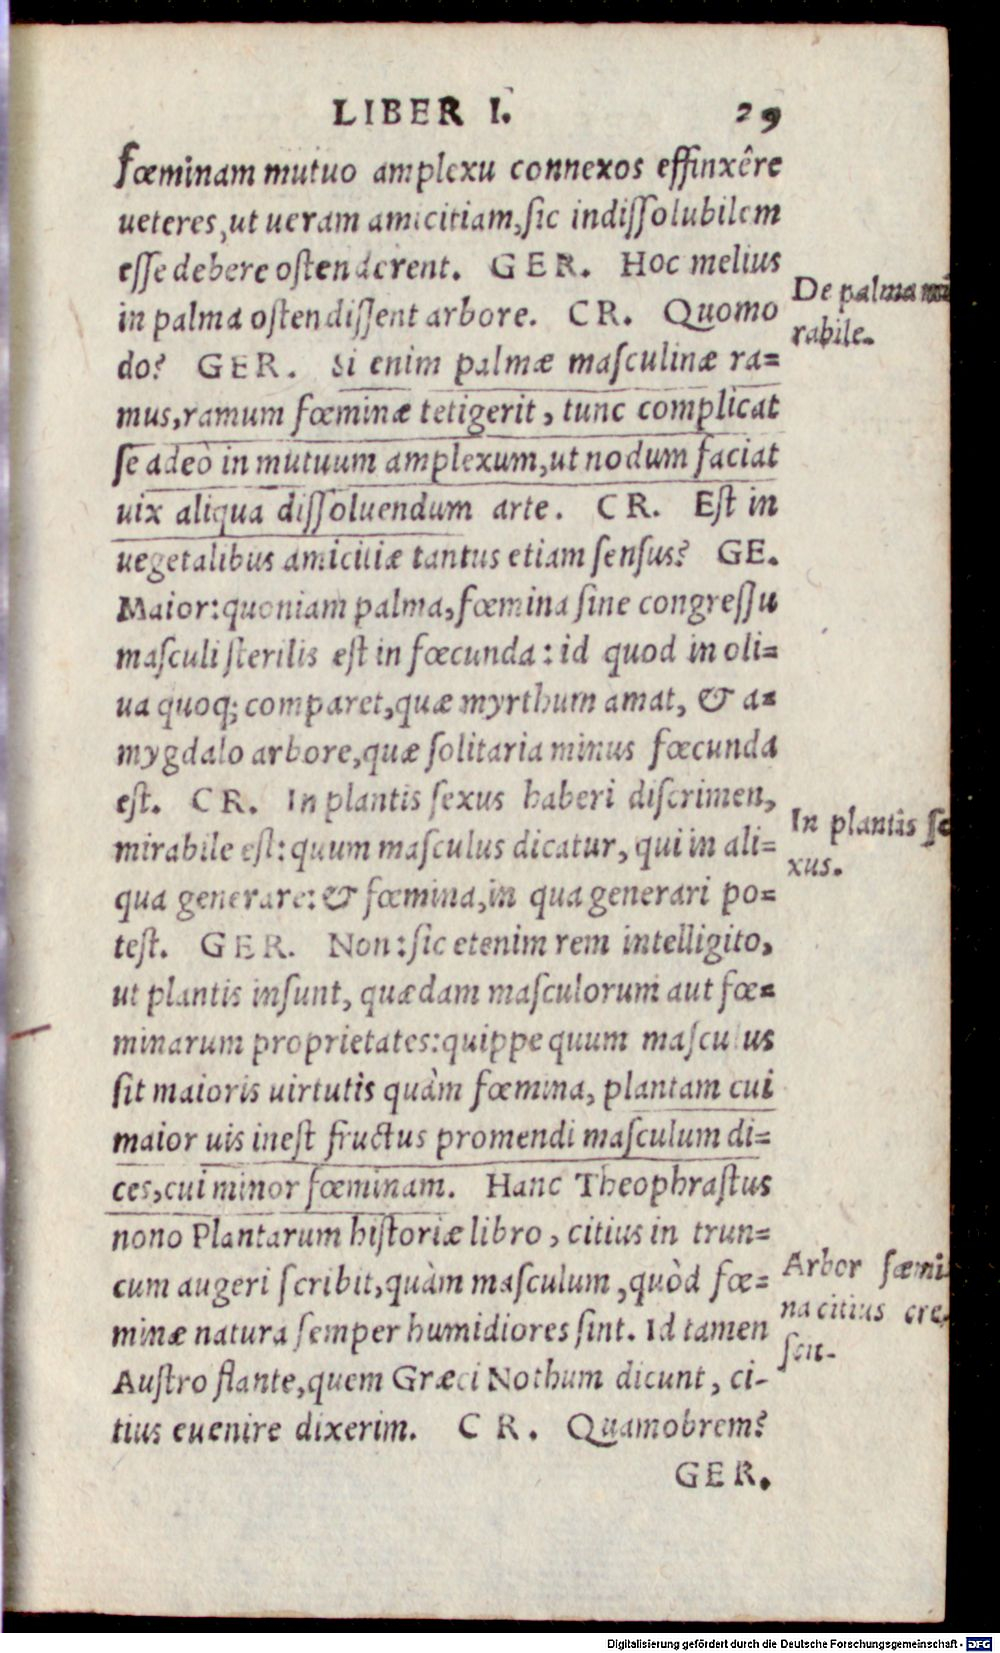 LIBER I. 29
fœminam mutuo amplexu connexos effinxêre
ueteres, ut ueram amicitiam, sic indiſſolubilem
eſſe debere oſtenderent. GER. Hoc melius
in palma oſtendiſſent arbore. CR. Quomo
do? GER. Si enim palmæ maſculinæ ra=
mus, ramum fœminæ tetigerit, tunc complicat
ſe adeò in mutuum amplexum, ut nodum faciat
uix aliqua diſſoluendum arte. CR. Eſt in
uegetalibus amicitiæ tantus etiam ſenſus? GE.
Maior: quoniam palma, fœmina ſine congreſſu
maſculi ſterilis eſt in fœcunda: id quod in oli=
ua quoq; comparet, quæ myrthum amat, & a=
mygdalo arbore, quæ ſolitaria minus fœcunda
eſt. CR. In plantis ſexus haberi diſcrimen,
mirabile eſt: quum maſculus dicatur, qui in ali=
qua generare: & fœmina, in qua generari po=
teſt. GER. Non: ſic etenim rem intelligito,
ut plantis inſunt, quædam maſculorum aut fœ=
minarum proprietates: quippe quum maſculus
ſit maioris uirtutis quàm fœmina, plantam cui
maior uis ineſt fructus promendi maſculum di=
ces, cui minor fœminam. Hanc Theophraſtus
nono Plantarum hiſtoriæ libro, citius in trun=
cum augeri ſcribit, quàm maſculum, quòd fœ=
minæ natura ſemper humidiores ſint. Id tamen
Auſtro flante, quem Græci Nothum dicunt, ci-
tius euenire dixerim. CR. Quamobrem?
GER.
De palma mi
rabile.
In plantis ſe
xus.
Arbor fœmi
na citius cre,
ſcit.
Digitalisierung gefördert durch die Deutsche Forschungsgemeinschaft - DFG